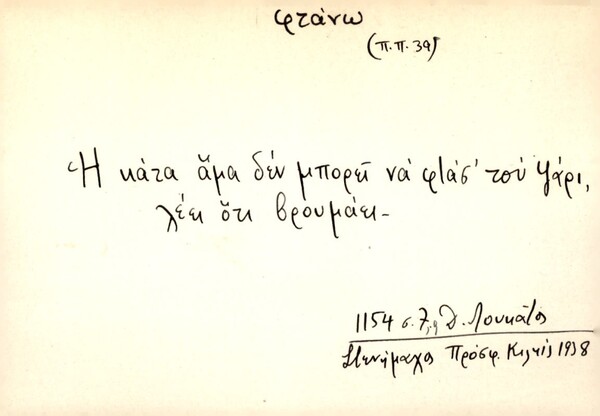 φτάνω
(π.π. 39)
Ἡ κάτα ἅμα δέν μπορεῖ νά φτάσ' τοὐ ψάρι,
λέει ὅτι βρουμάει_
1154 σ. 7, Δ. Λουκᾶτος
Στενήμαχος Πρόσφ. Κιλκίς 1938